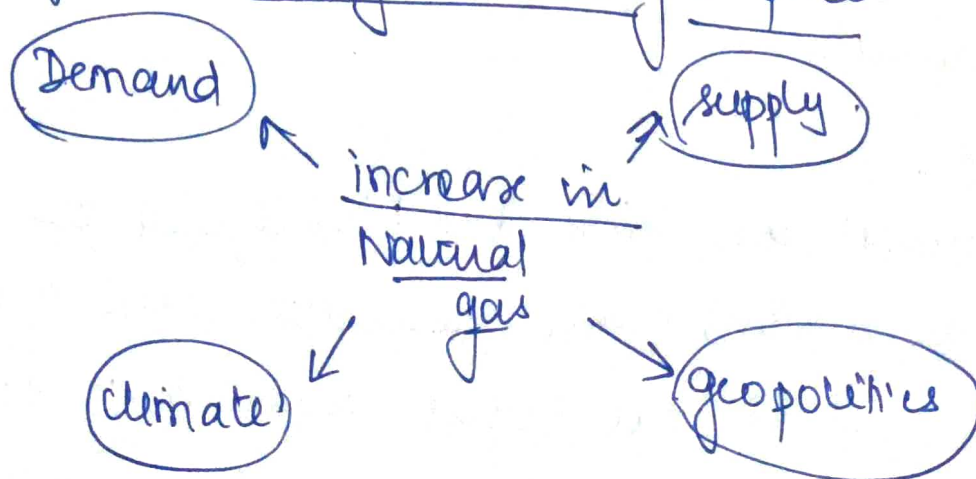 Demand
supply
increase in
Natural
gas
climate
geopolitics